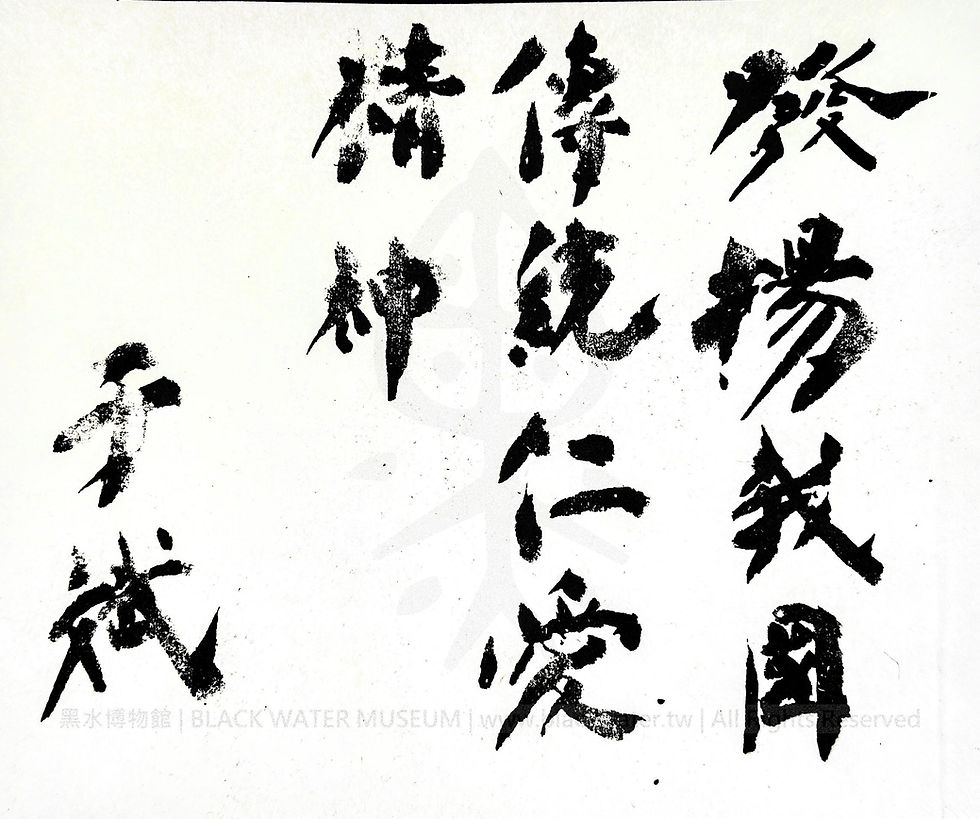 發揚我國
傳統仁愛
精神
于斌
黑水博物館 | BLACK WATER MUSEUM | www.blackwater.tw | All Rights Reserved